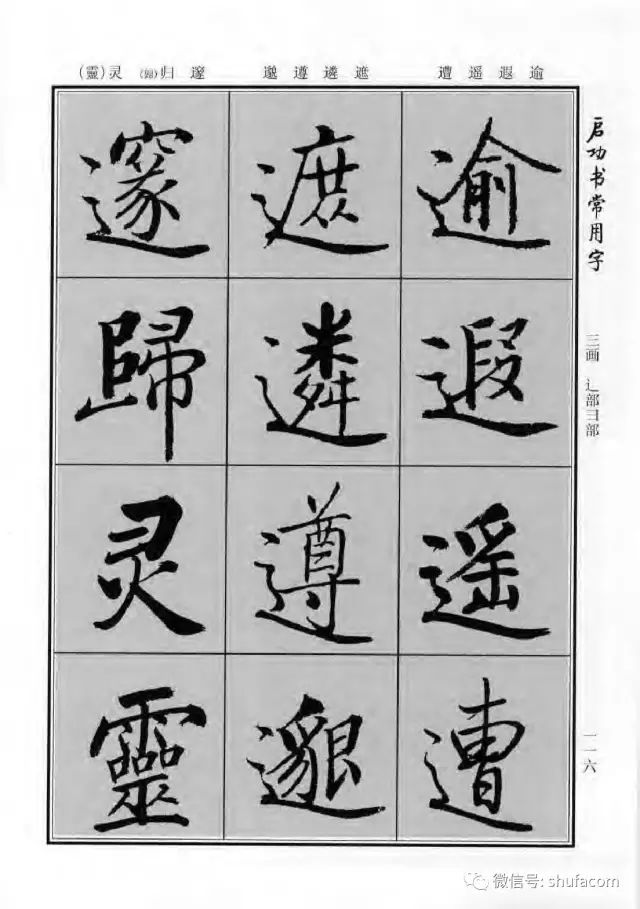 启功书常用字
三画 辶部彐部
一一六
逾遐遥遭 遮遴遵邈 邃归(歸)灵(靈)
逾遐遥遭
遮遴遵邈
邃歸灵靈
微信号: shufacom